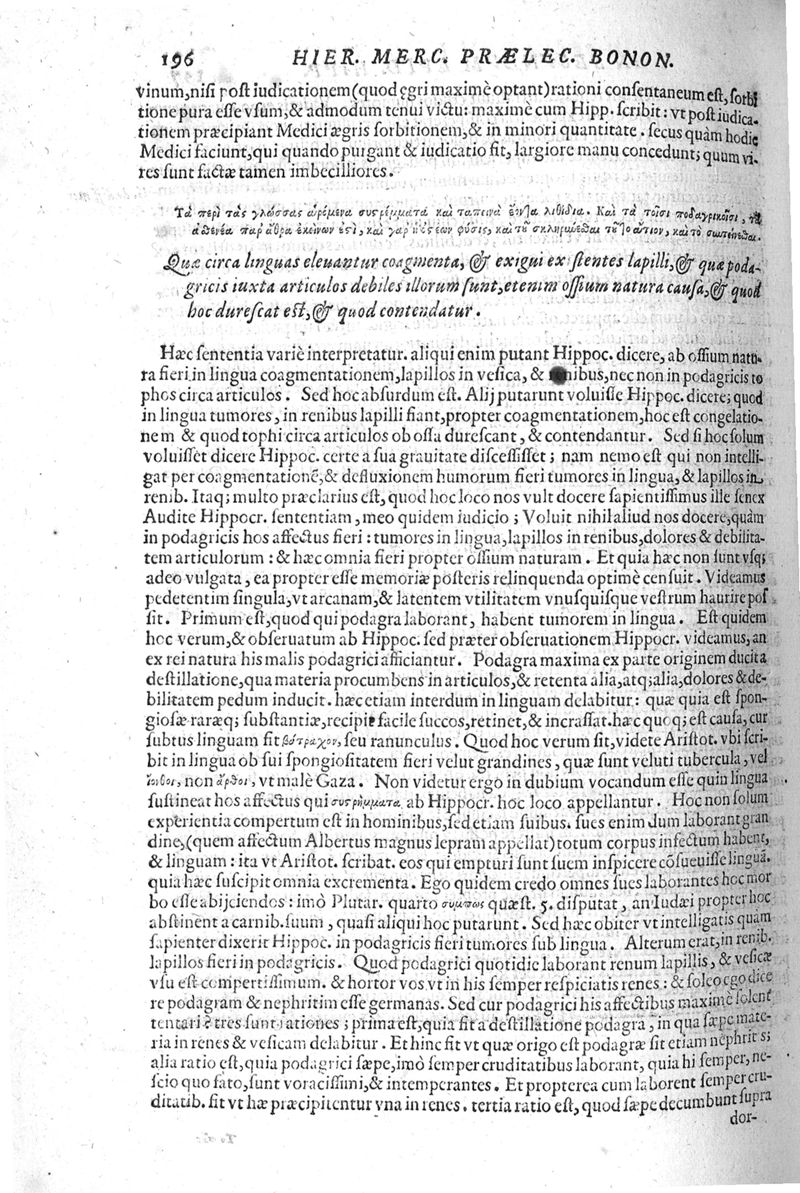 196 HIER. MERC. PRÆLEC. BONON.
vinum, nisi post iudicationem (quod ęgri maximè optant) rationi consentaneum est, sorbi
tione pura esse vsum, & admodum tenui victu: maximè cum Hipp. scribit: vt post iudica-
tionem præcipiant Medici ægris sorbitionem, & in minori quantitate. secus quàm hodie
Medici faciunt, qui quando purgant & iudicatio fit, largiore manu concedunt; quum vi-
res sunt factæ tamen imbecilliores.
Τὰ περὶ τὰς γλώσσας
Quæ circa linguas eleuantur coagmenta, & exigui existentes lapilli, & quæ poda-
gricis iuxta articulos debiles illorum sunt, etenim ossium natura causa, & quod
hoc durescat est, & quod contendatur.
Hæc sententia variè interpretatur. aliqui enim putant Hippoc. dicere, ab ossium natu-
ra fieri in lingua coagmentationem, lapillos in vesica, & nec non in podagricis to
phos circa articulos. Sed hoc absurdum est. Alij putarunt voluisse Hippoc. dicere; quod
in lingua tumores, in renibus lapilli fiant, propter coagmentationem, hoc est congelatio-
nem & quod tophi circa articulos ob ossa durescant, & contendantur. Sed si hoc solum
voluisset dicere Hippoc. certe a sua grauitate discessisset; nam nemo est qui non intelli-
gat per coagmentationē, & defluxionem humorum fieri tumores in lingua, & lapillos in
renib. Itaq; multo præclarius est, quod hoc loco nos vult docere sapientissimus ille senex
Audite Hippocr. sententiam, meo quidem iudicio; Voluit nihil aliud nos docere, quàm
in podagricis hos affectus fieri: tumores in lingua, lapillos in renibus, dolores & debilita-
tem articulorum: & hæc omnia fieri propter ossium naturam. Et quia hæc non sunt vsq;
adeo vulgata, ea propter esse memoriæ posteris relinquenda optimè censuit. Videamus
pedetentim singula, vt arcanam, & latentem vtilitatem vnusquisque vestrum haurire pos
sit. Primum est, quod qui podagra laborant, habent tumorem in lingua. Est quidem
hoc verum, & obseruatum ab Hippoc. sed præter obseruationem Hippocr. videamus, an
ex rei natura his malis podagrici afficiantur. Podagra maxima ex parte originem ducit a
destillatione, qua materia procumbens in articulos, & retenta alia, atq; alia, dolores & de-
bilitatem pedum inducit. hæc etiam interdum in linguam delabitur: quæ quia est spon-
giosæ raræq; substantiæ, recipit facile succos, retinet, & incrassat. hæc quoq; est causa, cur
subtus linguam fit βάτραχον, seu ranunculus. Quod hoc verum sit, videte Aristot. vbi scri-
bit in lingua ob sui spongiositatem fieri velut grandines, quæ sunt veluti tubercula, vel
non vt malè Gaza. Non videtur ergo in dubium vocandum esse quin lingua
sustineat hos affectus qui συστρέμματα ab Hippocr. hoc loco appellantur. Hoc non solum
experientia compertum est in hominibus, sed etiam suibus. sues enim dum laborant gran
dine, (quem affectum Albertus magnus lepram appellat) totum corpus infectum habent,
& linguam: ita vt Aristot. scribat. eos qui empturi sunt suem inspicere cōsueuisse linguā.
quia hæc suscipit omnia excrementa. Ego quidem credo omnes sues laborantes hoc mor
bo esse abijciendos: imò Plutar. quarto συμπως quæst. 5. disputat, an Iudæi propter hoc
abstinent a carnib. suum, quasi aliqui hoc putarunt. Sed hæc obiter vt intelligatis quam
sapienter dixerit Hippoc. in podagricis fieri tumores sub lingua. Alterum erat, in renib.
lapillos fieri in podagricis. Quod podagrici quotidie laborant renum lapillis, & vesicæ
vsu est compertissimum. & hortor vos vt in his semper respiciatis renes: & soleo ego dice
re podagram & nephritim esse germanas. Sed cur podagrici his affectibus maximè solent
tentari? tres sunt rationes; prima est, quia fit a destillatione podagra, in qua sæpe mate-
ria in renes & vesicam delabitur. Et hinc fit vt quæ origo est podagræ sit etiam nephritis;
alia ratio est, quia podagrici sæpe, imò semper cruditatibus laborant, quia hi semper, ne-
scio quo fato, sunt voracissimi, & intemperantes. Et propterea cum laborent semper cru-
ditatib. fit vt hæ præcipitentur vna in renes. tertia ratio est, quod sæpe decumbunt supra
dor-